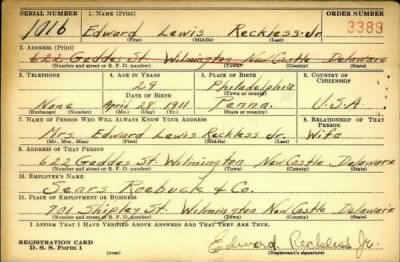 SERIAL NUMBER 1. NAME (Print) ORDER NUMBER
1016 Edward Lewis Reckless Jr. 3389
(First) (Middle) (Last)
2. ADDRESS (Print)
622 Geddes St. Wilmington New Castle Delaware
(Number and street or R. F. D. number) (Town) (County) (State)
3. TELEPHONE 4. AGE IN YEARS 5. PLACE OF BIRTH 6. COUNTRY OF CITIZENSHIP
29 Philadelphia
DATE OF BIRTH (Town or county)
None April 28 1911 Penna. U.S.A.
(Exchange) (Number) (Mo.) (Day) (Yr.) (State or country)
7. NAME OF PERSON WHO WILL ALWAYS KNOW YOUR ADDRESS 8. RELATIONSHIP OF THAT PERSON
Mrs. Edward Lewis Reckless Jr. Wife
(Mr., Mrs., Miss) (First) (Middle) (Last)
9. ADDRESS OF THAT PERSON
622 Geddes St. Wilmington New Castle Delaware
(Number and street or R. F. D. number) (Town) (County) (State)
10. EMPLOYER'S NAME
Sears Roebuck & Co.
11. PLACE OF EMPLOYMENT OR BUSINESS
701 Shipley St. Wilmington New Castle Delaware
(Number and street or R. F. D. number) (Town) (County) (State)
I AFFIRM THAT I HAVE VERIFIED ABOVE ANSWERS AND THAT THEY ARE TRUE.
REGISTRATION CARD Edward Reckless Jr.
D. S. S. Form 1 (over) (Registrant's signature)